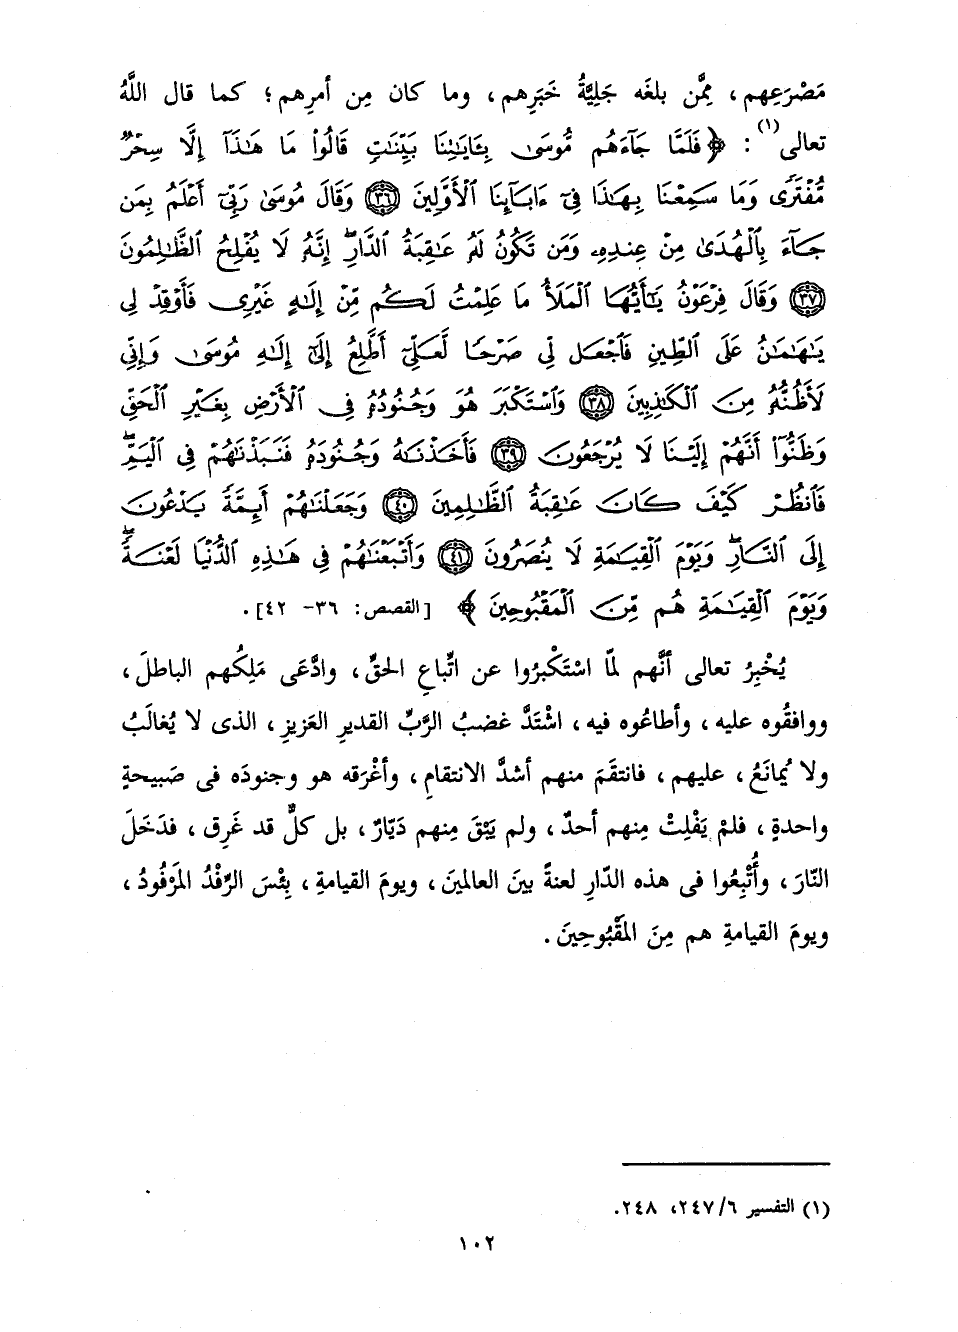 مَصْرَعِهم، مِمَّن بلغَه جَلِيَّةُ خَبَرِهم، وما كان مِن أمرِهم؛ كما قال اللَّهُ
تعالى(١): ﴿فَلَمَّا جَآءَهُم مُّوسَىٰ بِـَٔايَـٰتِنَا بَيِّنَـٰتٍ قَالُوا۟ مَا هَـٰذَآ إِلَّا سِحْرٌ
مُّفْتَرًى وَمَا سَمِعْنَا بِهَـٰذَا فِىٓ ءَابَآئِنَا ٱلْأَوَّلِينَ ٣٦ وَقَالَ مُوسَىٰ رَبِّىٓ أَعْلَمُ بِمَن
جَآءَ بِٱلْهُدَىٰ مِنْ عِندِهِۦ وَمَن تَكُونُ لَهُۥ عَـٰقِبَةُ ٱلدَّارِ ۖ إِنَّهُۥ لَا يُفْلِحُ ٱلظَّـٰلِمُونَ
٣٧ وَقَالَ فِرْعَوْنُ يَـٰٓأَيُّهَا ٱلْمَلَأُ مَا عَلِمْتُ لَكُم مِّنْ إِلَـٰهٍ غَيْرِى فَأَوْقِدْ لِى
يَـٰهَـٰمَـٰنُ عَلَى ٱلطِّينِ فَٱجْعَل لِّى صَرْحًا لَّعَلِّىٓ أَطَّلِعُ إِلَىٰٓ إِلَـٰهِ مُوسَىٰ وَإِنِّى
لَأَظُنُّهُۥ مِنَ ٱلْكَـٰذِبِينَ ٣٨ وَٱسْتَكْبَرَ هُوَ وَجُنُودُهُۥ فِى ٱلْأَرْضِ بِغَيْرِ ٱلْحَقِّ
وَظَنُّوٓا۟ أَنَّهُمْ إِلَيْنَا لَا يُرْجَعُونَ ٣٩ فَأَخَذْنَـٰهُ وَجُنُودَهُۥ فَنَبَذْنَـٰهُمْ فِى ٱلْيَمِّ ۖ
فَٱنظُرْ كَيْفَ كَانَ عَـٰقِبَةُ ٱلظَّـٰلِمِينَ ٤٠ وَجَعَلْنَـٰهُمْ أَئِمَّةً يَدْعُونَ
إِلَى ٱلنَّارِ ۖ وَيَوْمَ ٱلْقِيَـٰمَةِ لَا يُنصَرُونَ ٤١ وَأَتْبَعْنَـٰهُمْ فِى هَـٰذِهِ ٱلدُّنْيَا لَعْنَةً ۖ
وَيَوْمَ ٱلْقِيَـٰمَةِ هُم مِّنَ ٱلْمَقْبُوحِينَ﴾ [القصص: ٣٦- ٤٢].
يُخْبِرُ تعالى أنَّهم لمّا اسْتَكْبرُوا عن اتِّباعِ الحقِّ، وادَّعَى مَلِكُهم الباطلَ،
ووافقُوه عليه، وأطاعُوه فيه، اشْتَدَّ غضبُ الرَّبِّ القديرِ العَزيزِ، الذى لا يُغالَبُ
ولا يُمانَعُ، عليهم، فانتقَمَ منهم أشدَّ الانتقامِ، وأغْرَقه هو وجنودَه فى صَبيحةٍ
واحدةٍ، فلمْ يَفْلِتْ مِنهم أحدٌ، ولم يَبْقَ مِنهم دَيّارٌ، بل كلٌّ قد غَرِق، فدَخَلَ
النّارَ، وأُتْبِعُوا فى هذه الدّارِ لعنةً بينَ العالمين، ويومَ القيامةِ، بِئْسَ الرِّفْدُ المَرْفُودُ،
ويومَ القيامةِ هم مِنَ المَقْبُوحِينَ.
(١) التفسير ٦/ ٢٤٧، ٢٤٨.
١٠٢